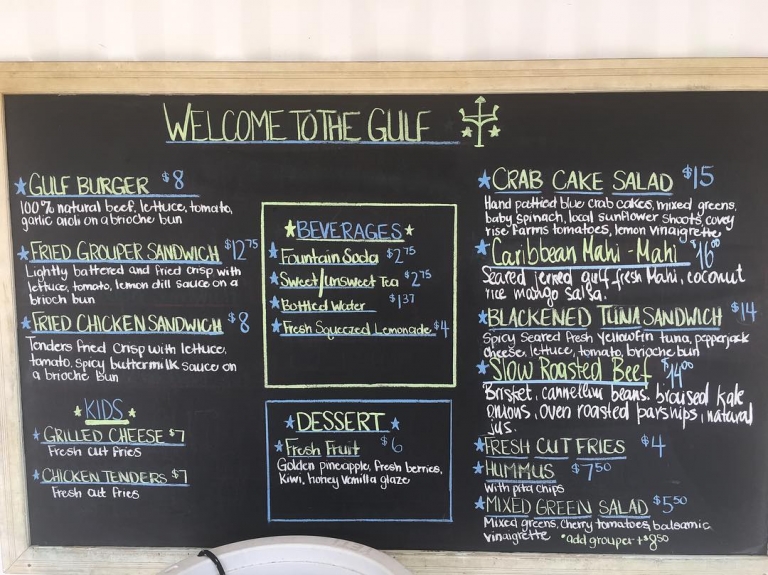 WELCOME TO THE GULF
GULF BURGER $8
100% natural beef, lettuce, tomato,
garlic aioli on a brioche bun
FRIED GROUPER SANDWICH $12.75
Lightly battered and fried crisp with
lettuce, tomato, lemon dill sauce on a
brioch bun
FRIED CHICKEN SANDWICH $8
Tenders fried crisp with lettuce,
tomato, spicy buttermilk sauce on
a brioche bun
KIDS
GRILLED CHEESE $7
Fresh cut fries
CHICKEN TENDERS $7
Fresh cut fries
BEVERAGES
Fountain Soda $2.75
Sweet/unsweet Tea $2.75
Bottled Water $1.37
Fresh Squeezed Lemonade $4
DESSERT
Fresh Fruit $6
Golden pineapple, fresh berries,
Kiwi, honey vanilla glaze
CRAB CAKE SALAD $15
Hand pattied blue crab cakes, mixed greens,
baby spinach, local sunflower shoots, covey
rise farms tomatoes, lemon vinaigrette
Caribbean Mahi-Mahi $16.00
Seared jerked gulf fresh Mahi, coconut
rice mango salsa.
BLACKENED TUNA SANDWICH $14
Spicy seared fresh yellowfin tuna, pepperjack
cheese, lettuce, tomato, brioche bun
Slow Roasted Beef $14.00
Brisket, cannellini beans, braised kale
onions, oven roasted parsnips, natural
jus.
FRESH CUT FRIES $4
HUMMUS $7.50
with pita chips
MIXED GREEN SALAD $5.50
Mixed greens, cherry tomatoes, balsamic
vinaigrette *add grouper +$8.50